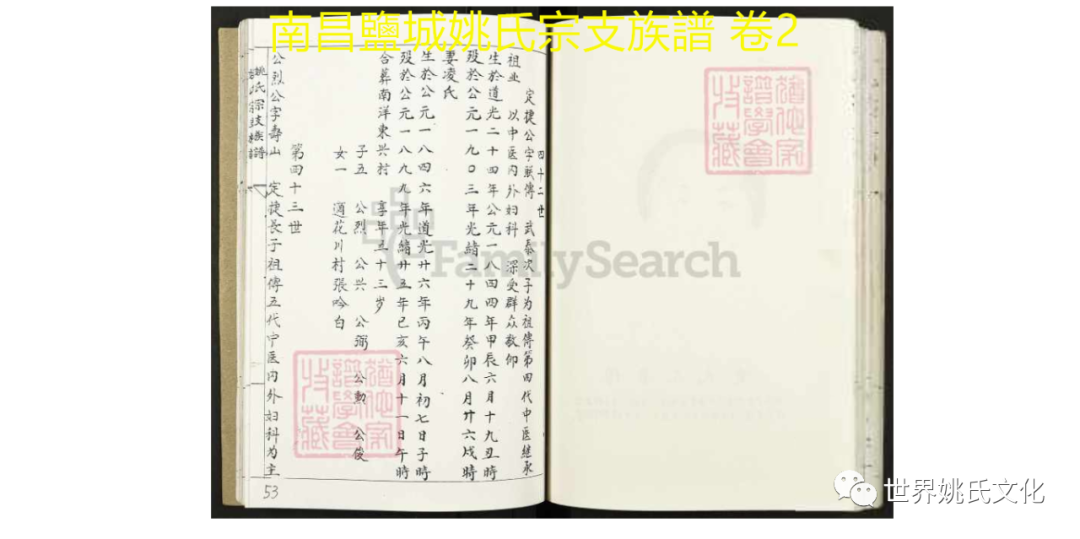 南昌鹽城姚氏宗支族譜 卷2
四十二世
定捷公字联傳 武泰次子为祖傳第四代中医继承
祖业 以中医内外妇科 深受群众敬仰
生於道光二十四年公元一八四四年甲辰六月十九丑時
殁於公元一九〇三年光緒二十九年癸卯八月廿六戌時
妻凌氏
生於公元一八四六年道光廿六年丙午八月初七日子時
殁於公元一八九九年光緒廿五年己亥六月十一日午時
合葬南洋東兴村 享年五十三岁
子五 公烈 公兴 公弼 公勳 公俊
女一 適花川村張吟白
第四十三世
公烈公字壽山 定捷長子祖傳五代中医内外妇科为主
姚氏宗支族譜
53
FamilySearch
世界姚氏文化